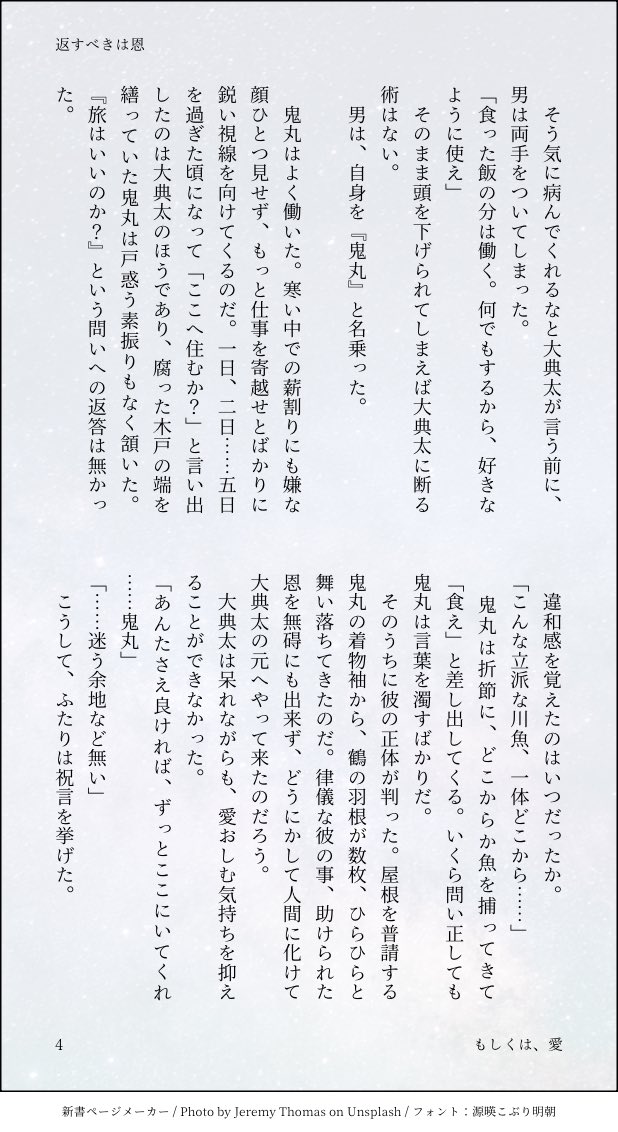 返すべきは恩
　そう気に病んでくれるなと大典太が言う前に、
男は両手をついてしまった。
「食った飯の分は働く。何でもするから、好きな
ように使え」
　そのまま頭を下げられてしまえば大典太に断る
術はない。
　男は、自身を『鬼丸』と名乗った。
　鬼丸はよく働いた。寒い中での薪割りにも嫌な
顔ひとつ見せず、もっと仕事を寄越せとばかりに
鋭い視線を向けてくるのだ。一日、二日……五日
を過ぎた頃になって「ここへ住むか？」と言い出
したのは大典太のほうであり、腐った木戸の端を
繕っていた鬼丸は戸惑う素振りもなく頷いた。
『旅はいいのか？』という問いへの返答は無かっ
た。
　違和感を覚えたのはいつだったか。
「こんな立派な川魚、一体どこから……」
　鬼丸は折節に、どこからか魚を捕ってきて
「食え」と差し出してくる。いくら問い正しても
鬼丸は言葉を濁すばかりだ。
　そのうちに彼の正体が判った。屋根を普請する
鬼丸の着物袖から、鶴の羽根が数枚、ひらひらと
舞い落ちてきたのだ。律儀な彼の事、助けられた
恩を無碍にも出来ず、どうにかして人間に化けて
大典太の元へやって来たのだろう。
　大典太は呆れながらも、愛おしむ気持ちを抑え
ることができなかった。
「あんたさえ良ければ、ずっとここにいてくれ
……鬼丸」
「……迷う余地など無い」
　こうして、ふたりは祝言を挙げた。
もしくは、愛
4
新書ページメーカー / Photo by Jeremy Thomas on Unsplash / フォント：源暎こぶり明朝